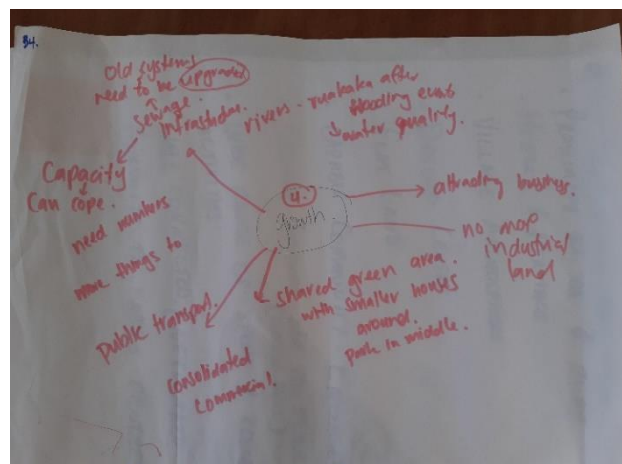 34.
Old systems
need to be upgraded
sewage.
infrastuctur.
rivers - ruakaka after
flooding
↓ water quality.
Capacity
Can cope.
need numbers
more things to
4.
growth.
attracting business.
no mop
industrial
land
shared green area.
with smaller houses
around.
park in middle.
public transport.
consolidated
commercial.